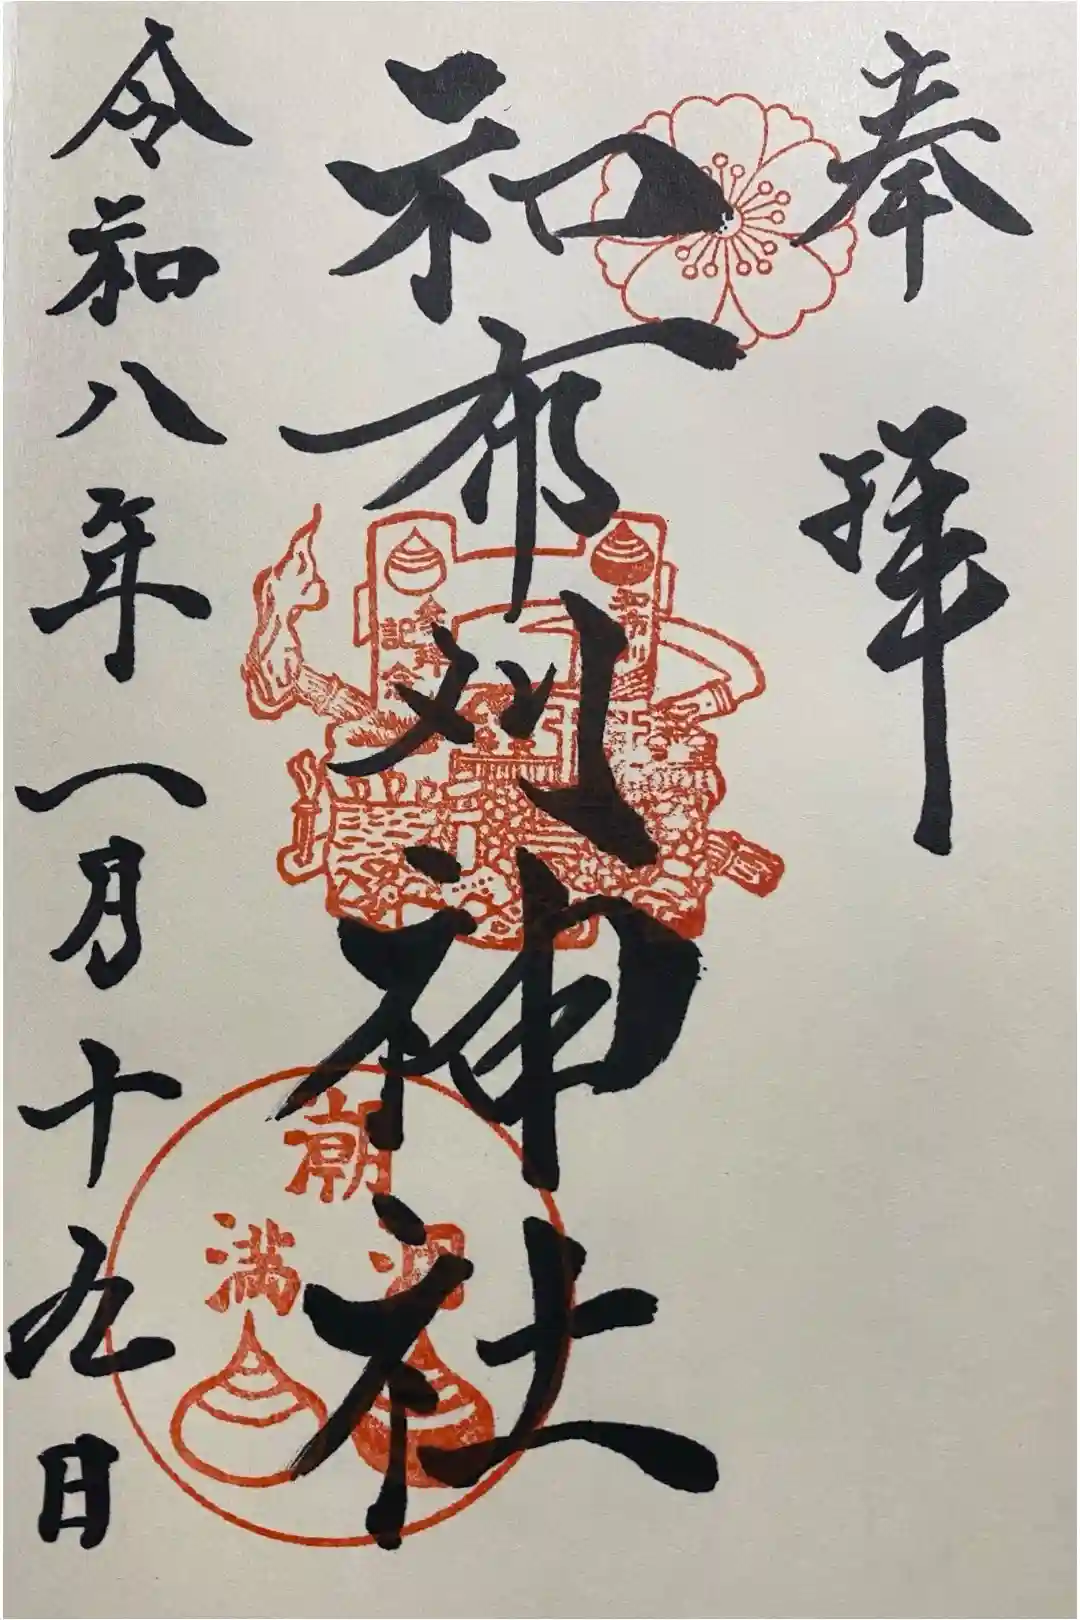 奉拝
和布刈神社
和布刈
参拝
記念
潮
満
令和八年一月十九日